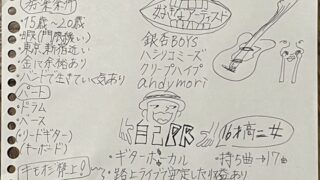 募集条件
・15歳〜20歳
・東京、新宿近い
・金に余裕あり
・バンドで生きていく気あり
パート
・ドラム
・ベース
・リードギター
(キーボード)
好きなアーティスト
銀杏BOYS
ハシリコミーズ
クリープハイプ
andymori
自己PR
16才高二女
・ギターボーカル
・持ち曲→17
・路上ライブで安定したり稀あり